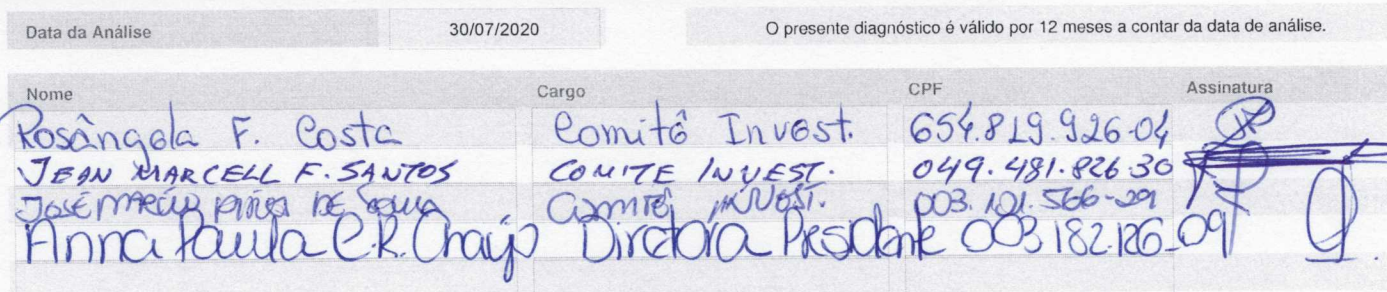 Data da Análise 30/07/2020 O presente diagnóstico é válido por 12 meses a contar da data de análise.
Nome Cargo CPF Assinatura
Rosângela F. Costa Comitê Invest. 654.819.926-04
JEAN MARCELL F. SANTOS COMITE INVEST. 049.481.826-30
JOSÉ DE COMITÊ INVEST. 003.101.566-29
Anna Paula C.R. Diretora Presidente 003182126-09